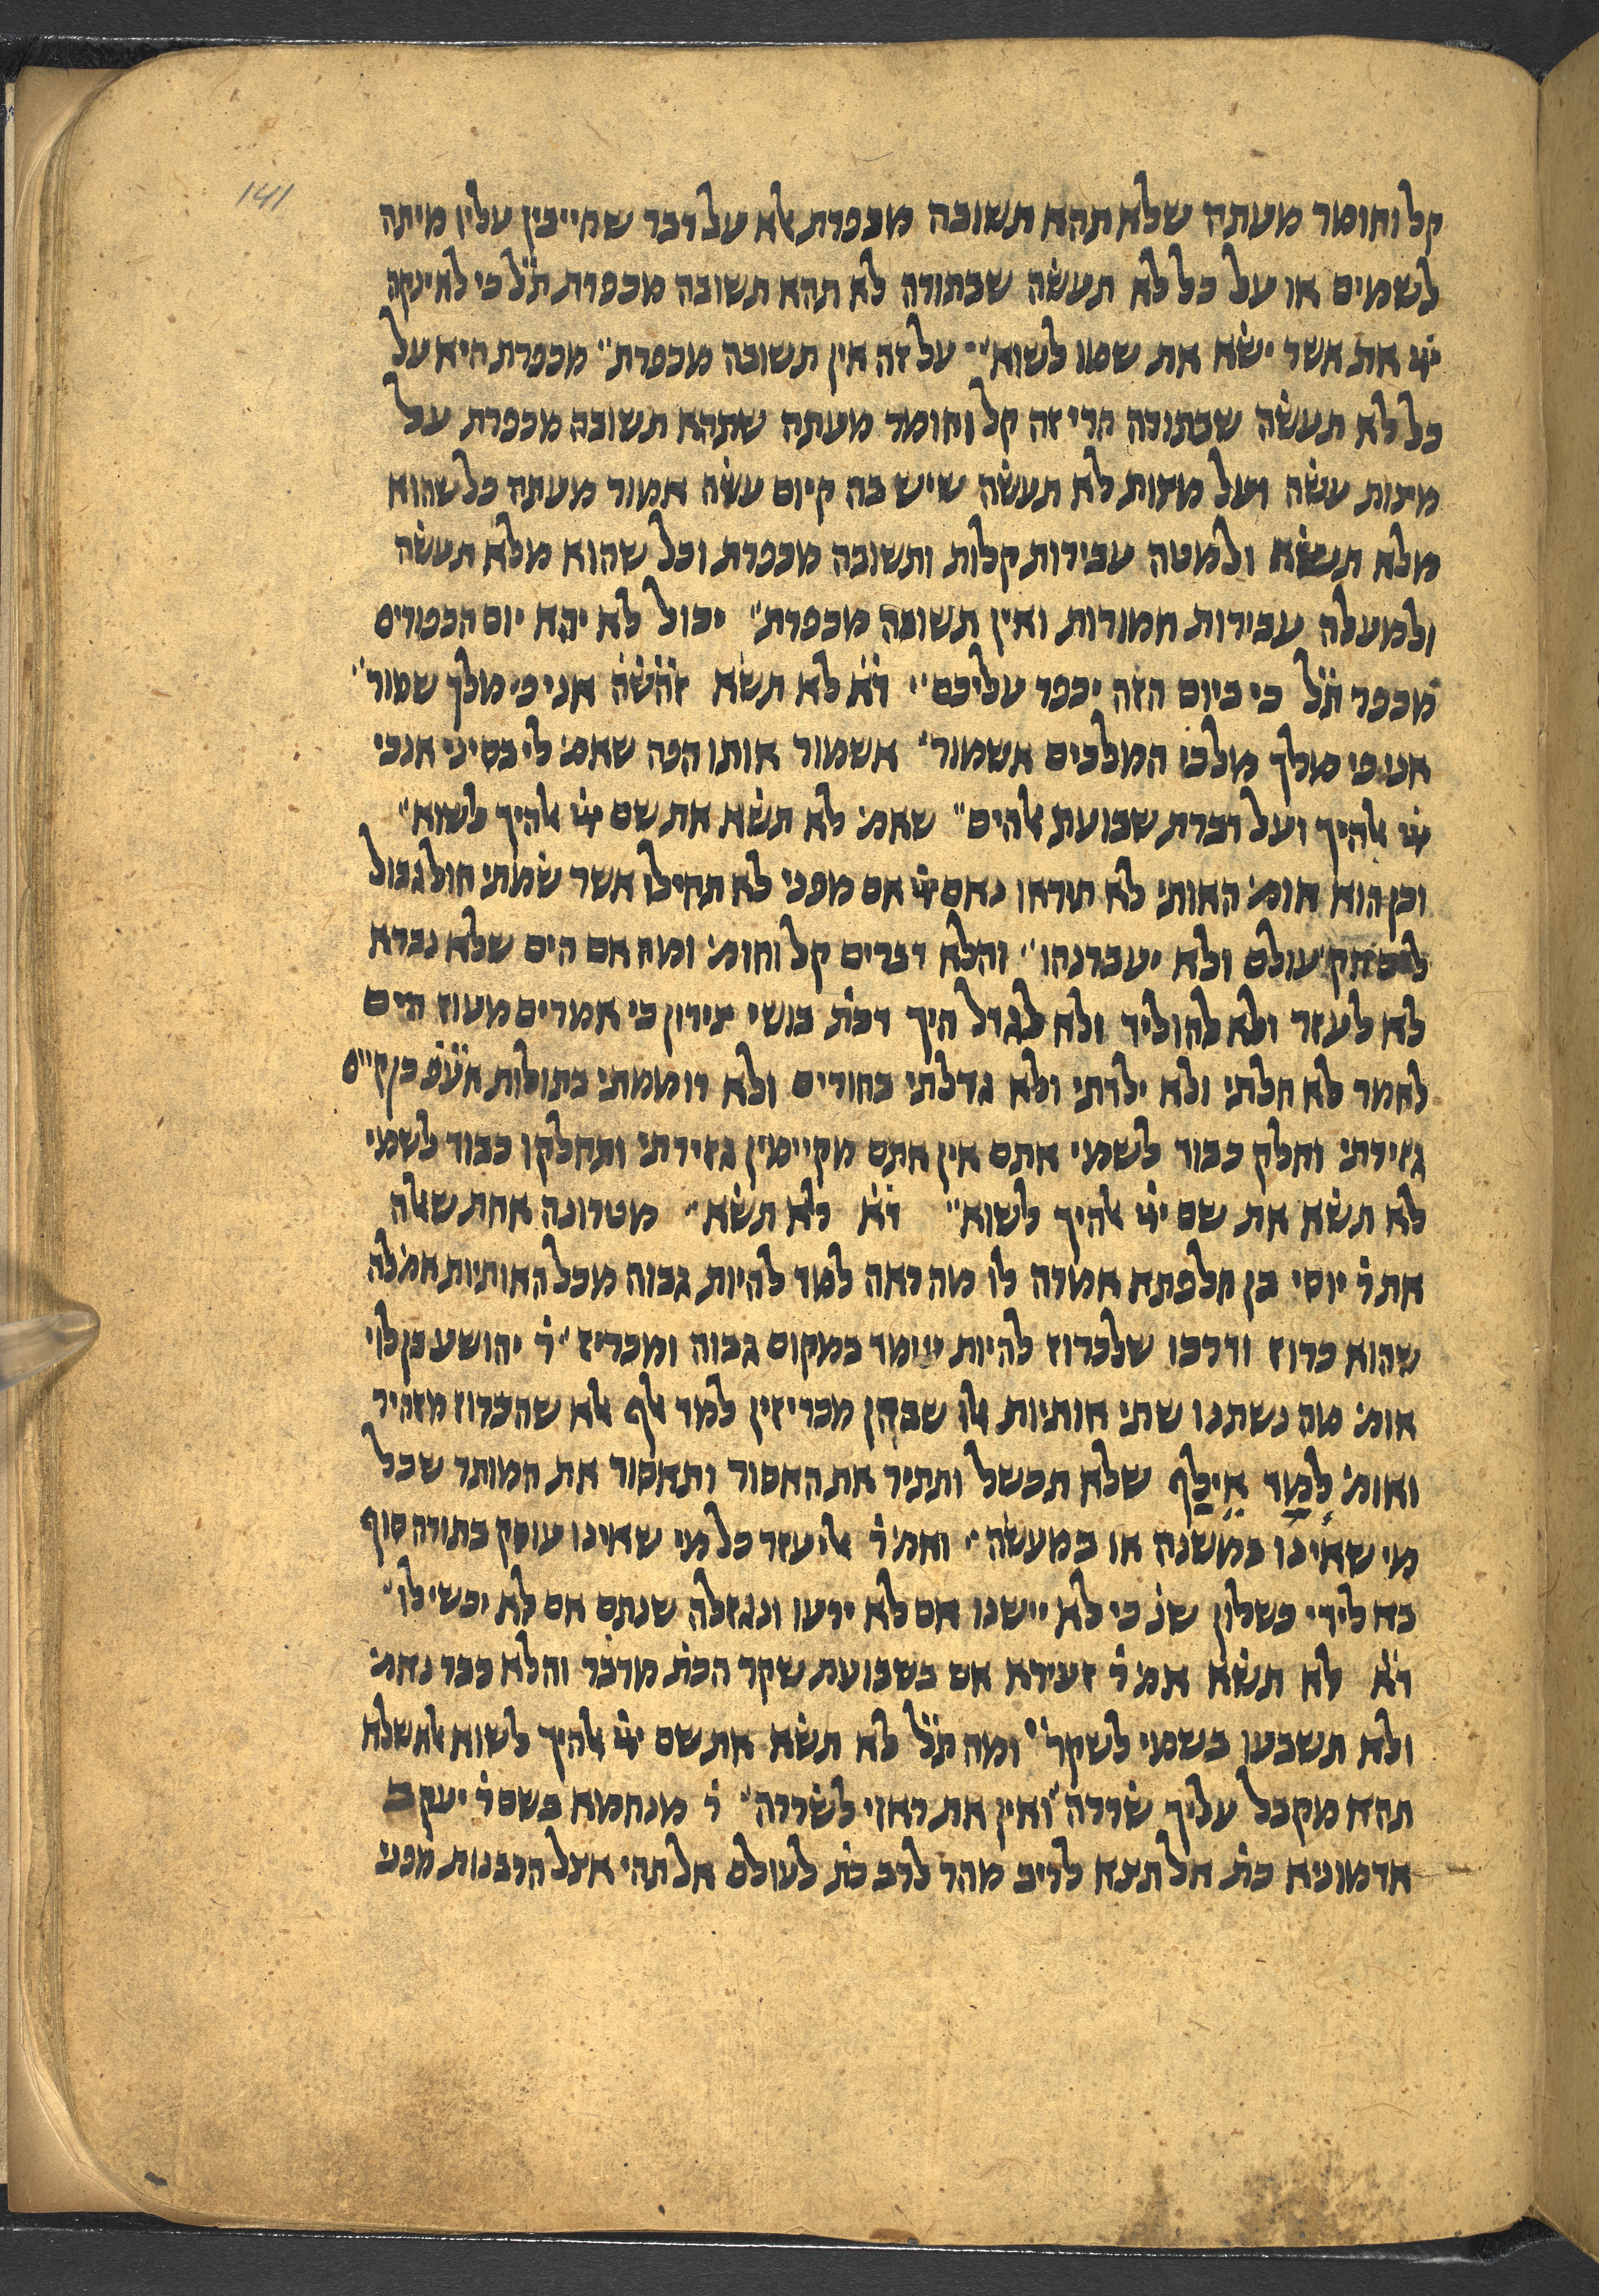 141
קל וחומר מעתה שלא תהא תשובה מכפרת אלא על דבר שחייבין עליו מיתה
לשמים או על כל לא תעשה שבתורה לא תהא תשובה מכפרת ת״ל כי לא ינקה
ייי את אשר ישא את שמו לשוא״ על זה אין תשובה מכפרת״ מכפרת היא על
כל לא תעשה שבתורה הרי זה קל וחומר מעתה שתהא תשובה מכפרת על
מצות עשה ועל מצות לא תעשה שיש בה קיום עשה אמור מעתה כל שהוא
מלא תעשה ולמטה עבירות קלות ותשובה מכפרת וכל שהוא מלא תעשה
ולמעלה עבירות חמורות ואין תשובה מכפרת״ יכול לא יהא יום הכפורים
מכפר ת״ל כי ביום הזה יכפר עליכם״ ד״א לא תשא זהש״ה אני פי מלך שמור״
אני פי מלך מלכי המלכים אשמור״ אשמור אותו הפה שאמ׳ לי בסיני אנכי
ייי אלהיך ועל דברת שבועת אלהים״ שאמ׳ לא תשא את שם ייי אלהיך לשוא״
וכן הוא אומ׳ האותי לא תיראו נאם ייי אם מפני לא תחילו אשר שמתי חול גבול
לים חק עולם ולא יעברנהו״ והלא דברים קל וחומ׳ ומה אם הים שלא נברא
לא לעזר ולא להוליד ולא לגדל היך דכת׳ בושי צידון כי אמר ים מעוז הים
לאמר לא חלתי ולא ילדתי ולא גדלתי בחורים ולא רוממתי בתולות אעפ״ כן קיים
גזירתי וחלק כבוד לשמי אתם אין אתם מקיימין גזירתי ותחלקו כבוד לשמי
לא תשא את שם ייי אלהיך לשוא״ ד״א לא תשא״ מטרונה אחת שאלה
את ר׳ יוסי בן חלפתא אמרה לו מה ראה למד להיות גבוה מכל האותיות אמ׳ לה
שהוא כרוז ודרכו שלכרוז להיות עומד במקום גבוה ומכריז״ ר׳ יהושע בן לוי
אומ׳ מה נשתנו שתי אותיות אלו שבהן מכריזין למד אלף אלא שהכרוז מזהיר
ואומ׳ למד אילף שלא תכשל ותתיר את האסור ותאסור את המותר שכל
מי שאינו במשנה או במעשה״ ואמ׳ ר׳ אליעזר כל מי שאינו עוסק בתורה סוף
בא לידי כשלון שנ׳ כי לא יישנו אם לא ירעו ונגזלה שנתם אם לא יכשילו״
ד״א לא תשא אמ׳ ר׳ זעירא אם בשבועת שקר הכת׳ מדבר והלא כבר נאמ׳
ולא תשבעו בשמי לשקר״ ומה ת״ל לא תשא את שם ייי אלהיך לשוא אלא שלא
תהא מקבל עליך שררה ואין את ראוי לשררה״ ר׳ מנחמא בשם ר׳ יעקב
אדמוניא כת׳ אל תצא לריב מהר לרב כת׳ לעולם אל תהי אצל הרבנות מפני